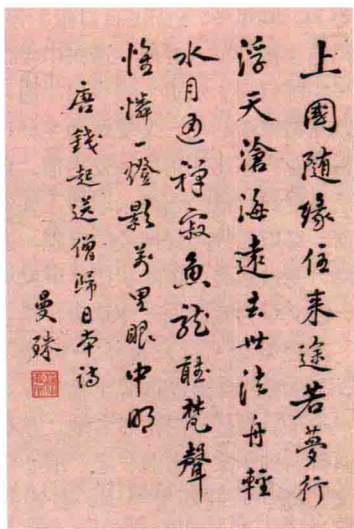 上國随緣住来途若夢行
浮天滄海遠去世法舟輕
水月通禅寂魚龍聴梵聲
惟憐一燈影萬里眼中明
唐錢起送僧歸日本詩
曼殊